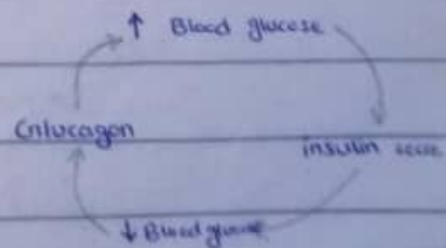 ↑ Blood glucose
Gnlucagon insulin
↓ Blood glucose